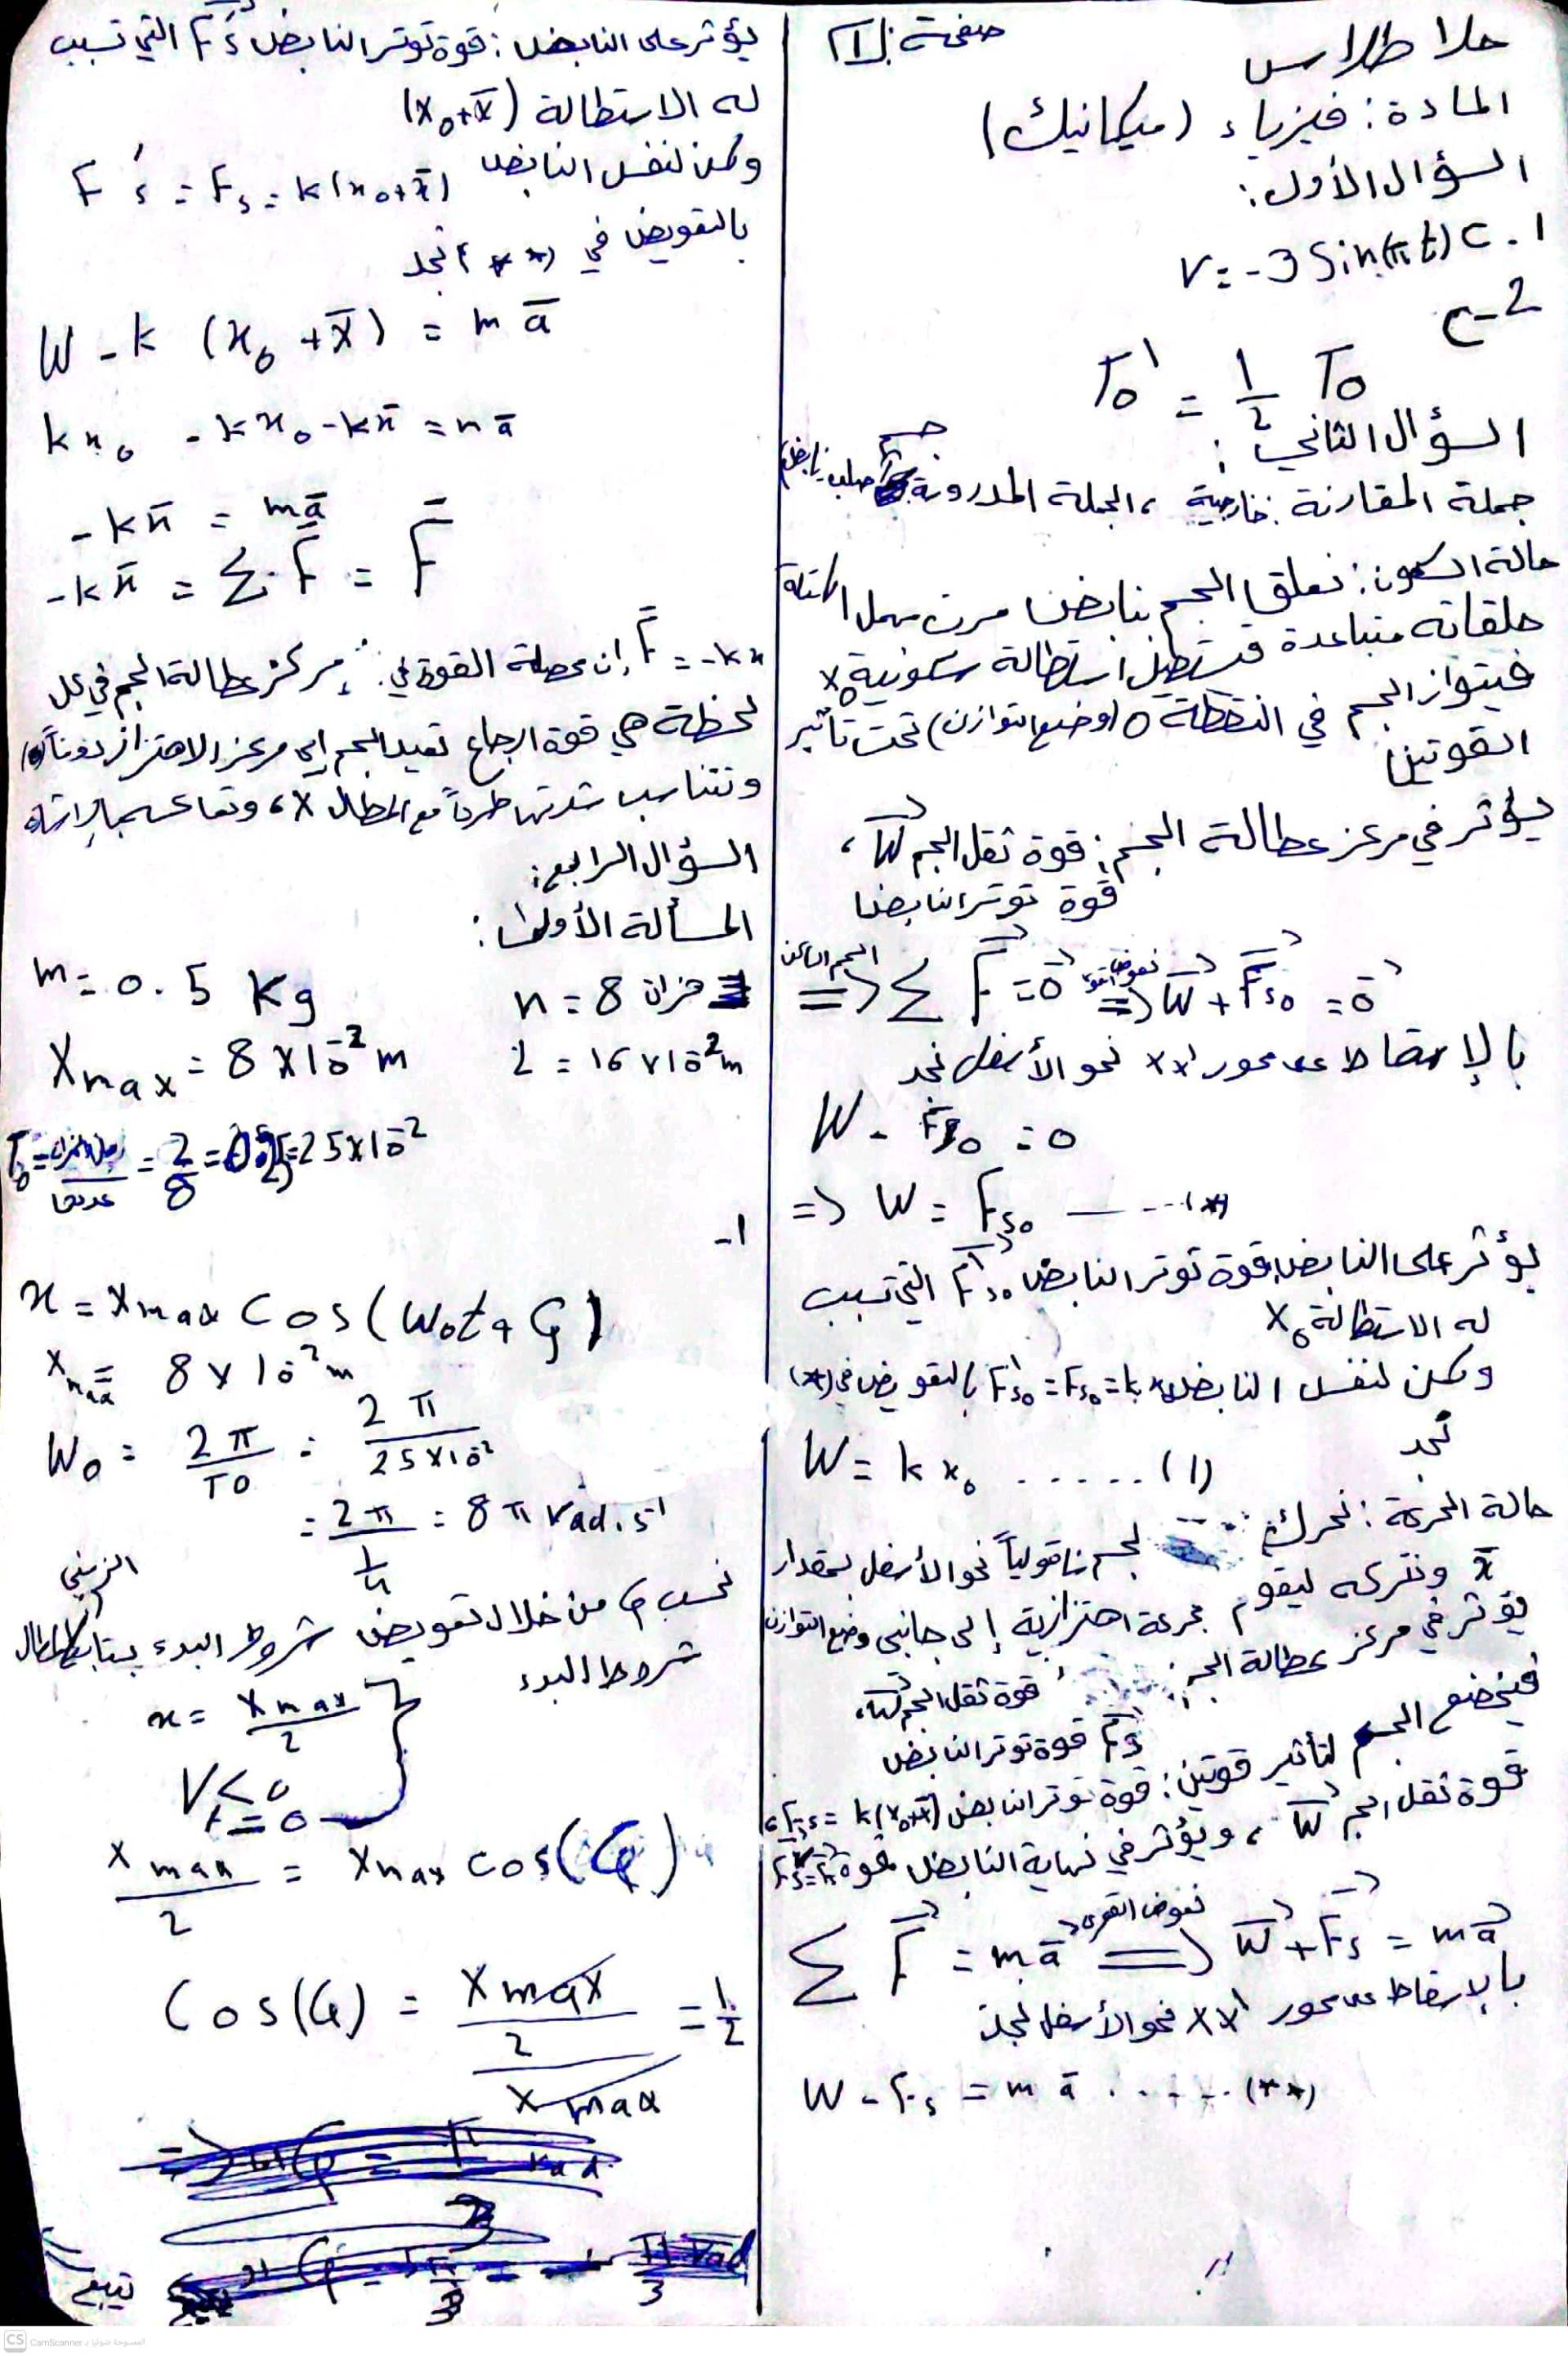 صفحة: 1
حلا طلاس
المادة: فيزياء (ميكانيك)
السؤال الأول:
1. c v = -3 sin(πt)
2 - c
T₀' = 1/2 T₀
السؤال الثاني:
جملة المقارنة: خارجية، الجملة المدروسة: جسم صلب نابض
حالة السكون: نعلق الجسم بنابض مرن مهمل الكتلة
حلقاته متباعدة فيستطيل استطالة سكونية x₀
فيتوازن الجسم في النقطة O (وضع التوازن) تحت تأثير
القوتين
يؤثر في مركز عطالة الجسم: قوة ثقل الجسم W،
قوة توتر النابض
الجسم ساكن => Σ F = 0 نعوض القوى => W + Fs₀ = 0
بالإسقاط على محور xx' نحو الأسفل نجد
W - Fs₀ = 0
=> W = Fs₀ ----- (*)
يؤثر على النابض قوة توتر النابض F's₀ التي تسبب
له الاستطالة x₀
ولكن لنفس النابض F's₀ = Fs₀ = kx₀ بالتعويض في (*)
نجد
W = k x₀ ...... (1)
حالة الحركة: نحرك الجسم شاقولياً نحو الأسفل بمقدار
x̄ ونتركه ليقوم بحركة اهتزازية إلى جانبي وضع التوازن
يؤثر في مركز عطالة الجسم: قوة ثقل الجسم W،
Fs قوة توتر النابض
فيخضع الجسم لتأثير قوتين: قوة توتر النابض Fs = k(x₀+x̄)،
قوة ثقل الجسم W، ويؤثر في نهاية النابض قوة
Σ F = m a نعوض القوى => W + Fs = m a
بالإسقاط على محور xx' نحو الأسفل نجد:
W - Fs = m ā ...... (**)
يؤثر على النابض: قوة توتر النابض F's التي تسبب
له الاستطالة (x₀+x̄)
ولكن لنفس النابض F's = Fs = k(x₀+x̄)
بالتعويض في (**) نجد
W - k (x₀ + x̄) = m ā
k x₀ - k x₀ - k x̄ = m ā
-k x̄ = m ā
-k x̄ = Σ F̄ = F̄
F̄ = -kx إن محصلة القوة في مركز عطالة الجسم في كل
لحظة هي قوة ارجاع تعيد الجسم إلى مركز الاهتزاز دوماً (o)
وتتناسب شدتها طرداً مع المطال x، وتعاكسه بالإشارة
السؤال الرابع:
المسألة الأولى:
n = 8 هزات m = 0.5 Kg
L = 16 × 10⁻² m Xmax = 8 × 10⁻² m
T₀ = زمن الهزات / عددها = 2/8 = 25×10⁻²
1-
x = Xmax cos(ω₀t + φ)
Xmax = 8 × 10⁻² m
ω₀ = 2π/T₀ = 2π/25×10⁻²
= 2π/(1/4) = 8π rad.s⁻¹
نحسب φ من خلال تعويض شروط البدء بتابع المطال الزمني
شروط البدء
x = Xmax/2
v < 0
t = 0
Xmax/2 = Xmax cos(φ)
cos(φ) = (Xmax/2)/Xmax = 1/2
يتبع
CS CamScanner الممسوحة ضوئيا بـ